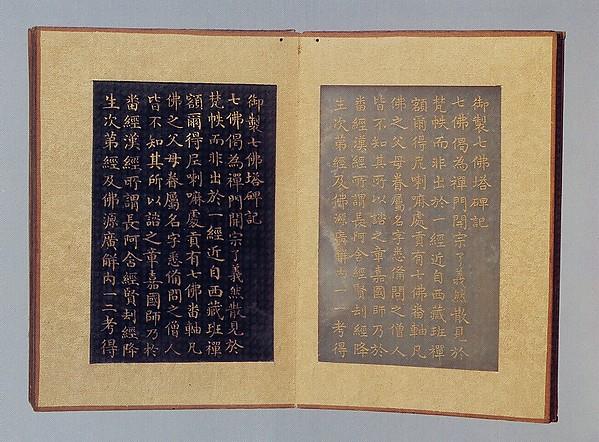 御製七佛塔碑記
七佛偈為禪門開宗了義然散見於
梵帙而非出於一經近自西藏班禪
額爾得尼喇嘛處貢有七佛畨軸凡
佛之父母眷屬名字悉俻問之僧人
皆不知其所以諮之章嘉國師乃於
畨經漢經所謂長阿含經賢刼經降
生次第經及佛源廣解內一一考得
御製七佛塔碑記
七佛偈為禪門開宗了義然散見於
梵帙而非出於一經近自西藏班禪
額爾得尼喇嘛處貢有七佛畨軸凡
佛之父母眷屬名字悉俻問之僧人
皆不知其所以諮之章嘉國師乃於
畨經漢經所謂長阿含經賢刼經降
生次第經及佛源廣解內一一考得